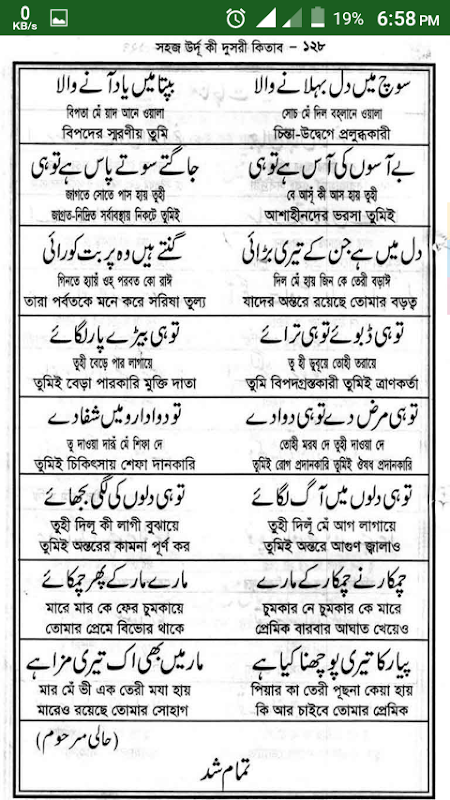 0
KB/s
19% 6:58 PM
সহজ উর্দু কী দুসরী কিতাব - ১২৮
سوچ میں دل بہلانے والا بپتا میں یاد آنے والا
সোচ মেঁ দিল বহলানে ওয়ালা বিপতা মেঁ য়াদ আনে ওয়ালা
চিন্তা-উদ্বেগে প্রলুব্ধকারী বিপদের স্মরণীয় তুমি
بے آسوں کی آس ہے تو ہی جاگتے سوتے پاس ہے تو ہی
বে আসূঁ কী আস হায় তূহী জাগতে সোতে পাস হায় তূহী
আশাহীনদের ভরসা তুমিই জাগ্রত-নিদ্রিত সর্বাবস্থায় নিকটে তুমিই
دل میں ہے جن کے تیری بڑائی گنتے ہیں وہ پربت کو رائی
দিল মেঁ হায় জিন কে তেরী বড়াঈ গিনতে হ্যায়ঁ ওহ্ পরবত কো রাঈ
যাদের অন্তরে রয়েছে তোমার বড়ত্ব তারা পর্বতকে মনে করে সরিষা তুল্য
تو ہی ڈبوئے تو ہی ترائے تو ہی بیڑے پار لگائے
তূ হী ডূবূয়ে তোহী তরায়ে তূহী বেড়ে পার লাগায়ে
তুমি বিপদগ্রস্তকারী তুমিই ত্রাণকর্তা তুমিই বেড়া পারকারি মুক্তি দাতা
تو ہی مرض دے تو ہی دوا دے تو دوا دارو میں شفا دے
তোহী মরয দে তূহী দাওয়া দে তূ দাওয়া দারূঁ মেঁ শিফা দে
তুমিই রোগ প্রদানকারি তুমিই ঔষধ প্রদানকারি তুমিই চিকিৎসায় শেফা দানকারি
تو ہی دلوں میں آگ لگائے تو ہی دلوں کی لگی بجھائے
তূহী দিলূঁ মেঁ আগ লাগায়ে তূহী দিলূঁ কী লাগী বুঝায়ে
তুমিই অন্তরে আগুণ জ্বালাও তুমিই অন্তরের কামনা পূর্ণ কর
چمکارنے چمکار کے مارے مارے مار کے پھر چمکائے
চুমকার নে চুমকার কে মারে মারে মার কে ফের চুমকায়ে
প্রেমিক বারবার আঘাত খেয়েও তোমার প্রেমে বিভোর থাকে
پیار کا تیری پوچھنا کیا ہے مار میں بھی اک تیری مزا ہے
পিয়ার কা তেরী পূছনা কেয়া হায় মার মেঁ ভী এক তেরী মযা হায়
কি আর চাইবে তোমার প্রেমিক মারেও রয়েছে তোমার সোহাগ
(حالی مرحوم)
تمام شد